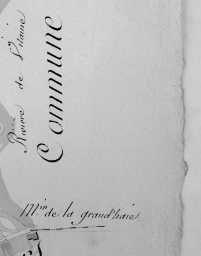 Riviere de Vilaine
Commune
M.in de la grand'haie